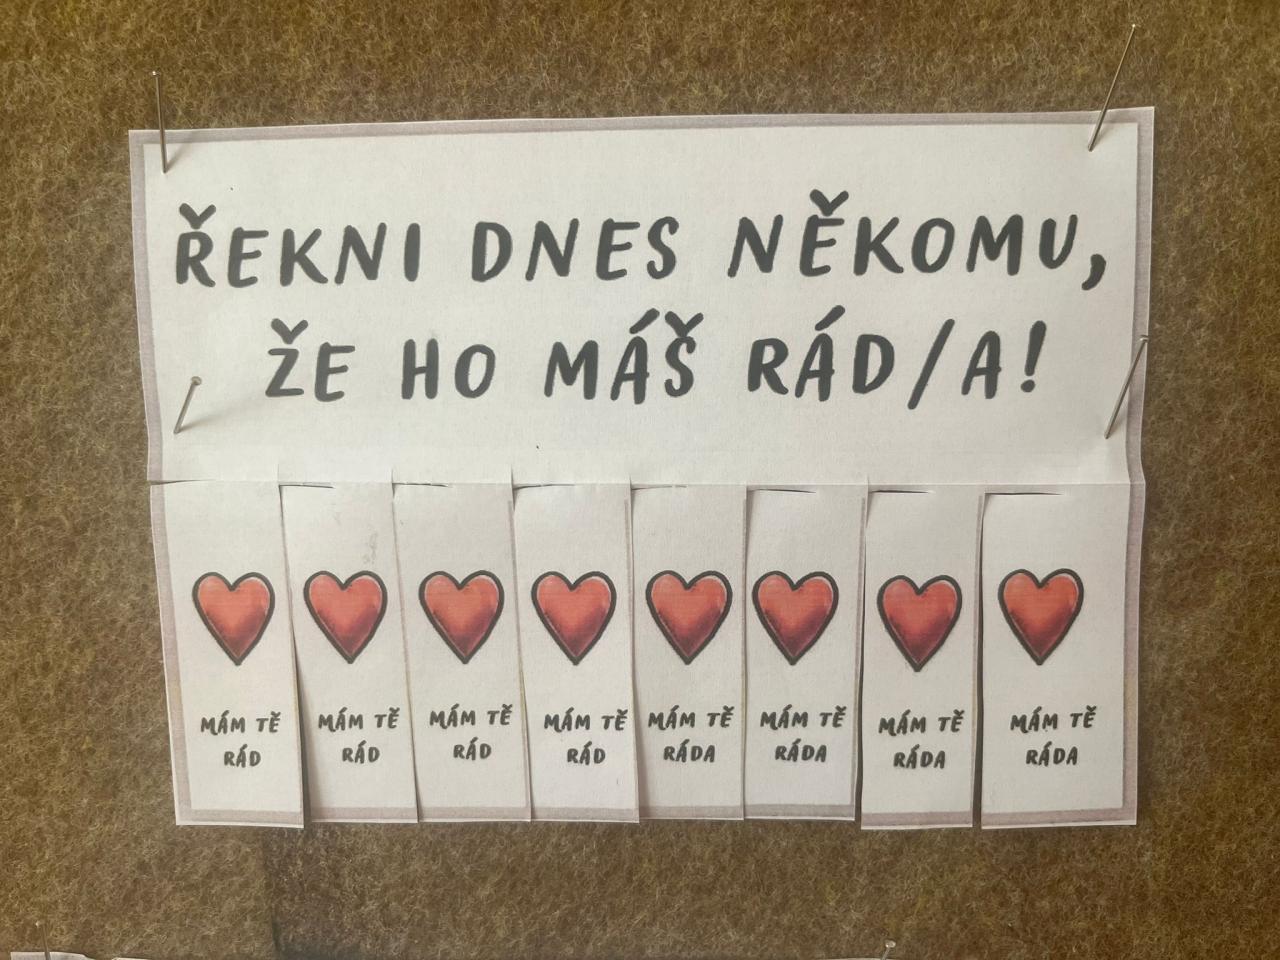 ŘEKNI DNES NĚKOMU,
ŽE HO MÁŠ RÁD/A!
MÁM TĚ
RÁD
MÁM TĚ
RÁD
MÁM TĚ
RÁD
MÁM TĚ
RÁD
MÁM TĚ
RÁDA
MÁM TĚ
RÁDA
MÁM TĚ
RÁDA
MÁM TĚ
RÁDA